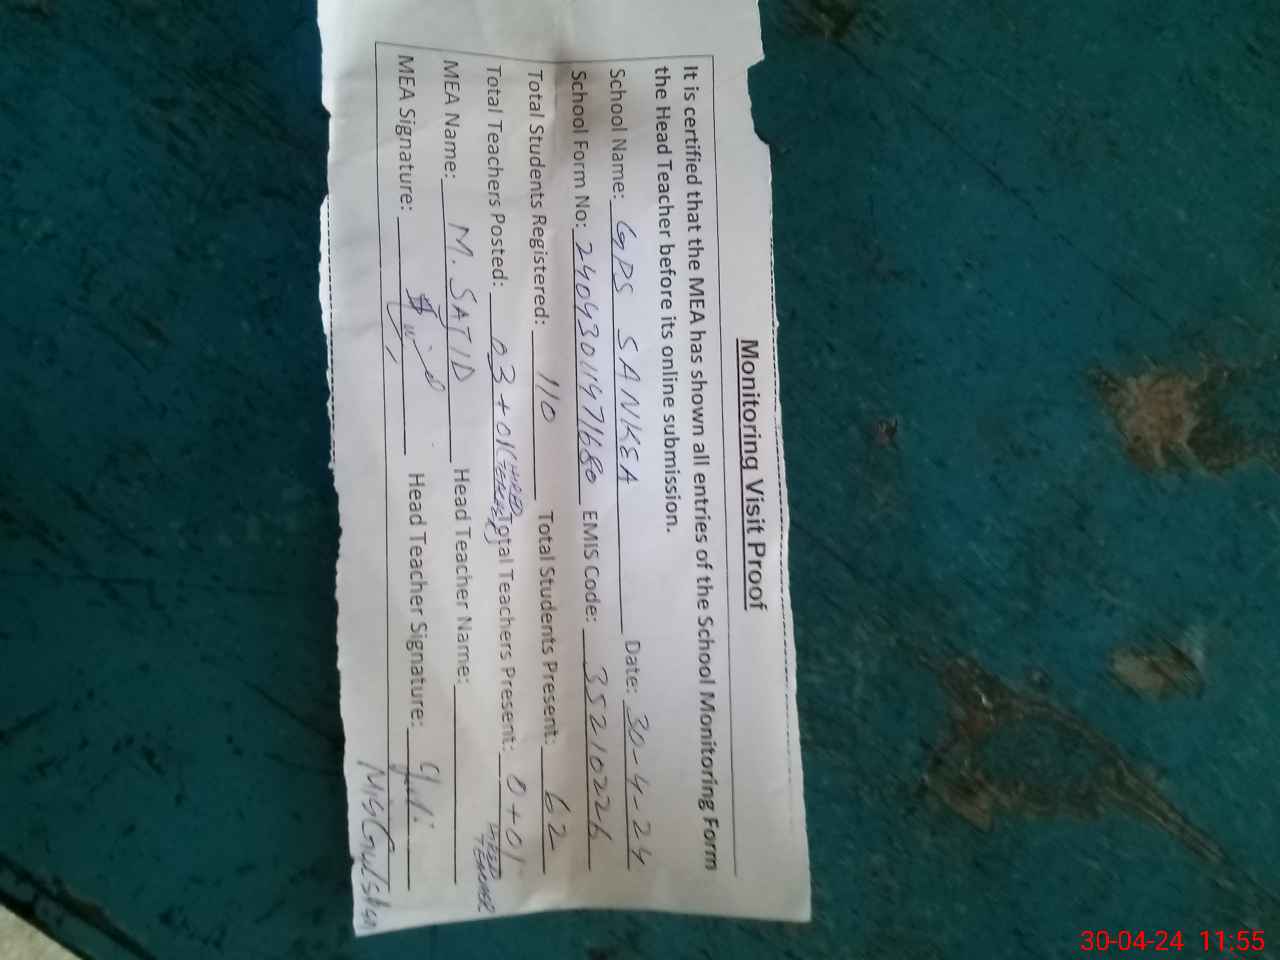 Monitoring Visit Proof
It is certified that the MEA has shown all entries of the School Monitoring Form
the Head Teacher before its online submission.
School Name: GPS SANKEA Date: 30-4-24
School Form No: 24043011971680 EMIS Code: 35210226
Total Students Registered: 110 Total Students Present: 62
Total Teachers Posted: 03+01(HIRED TEACHER) Total Teachers Present: 0+01 HIRED TEACHER
MEA Name: M. SAJID Head Teacher Name:
MEA Signature: Head Teacher Signature:
30-04-24 11:55